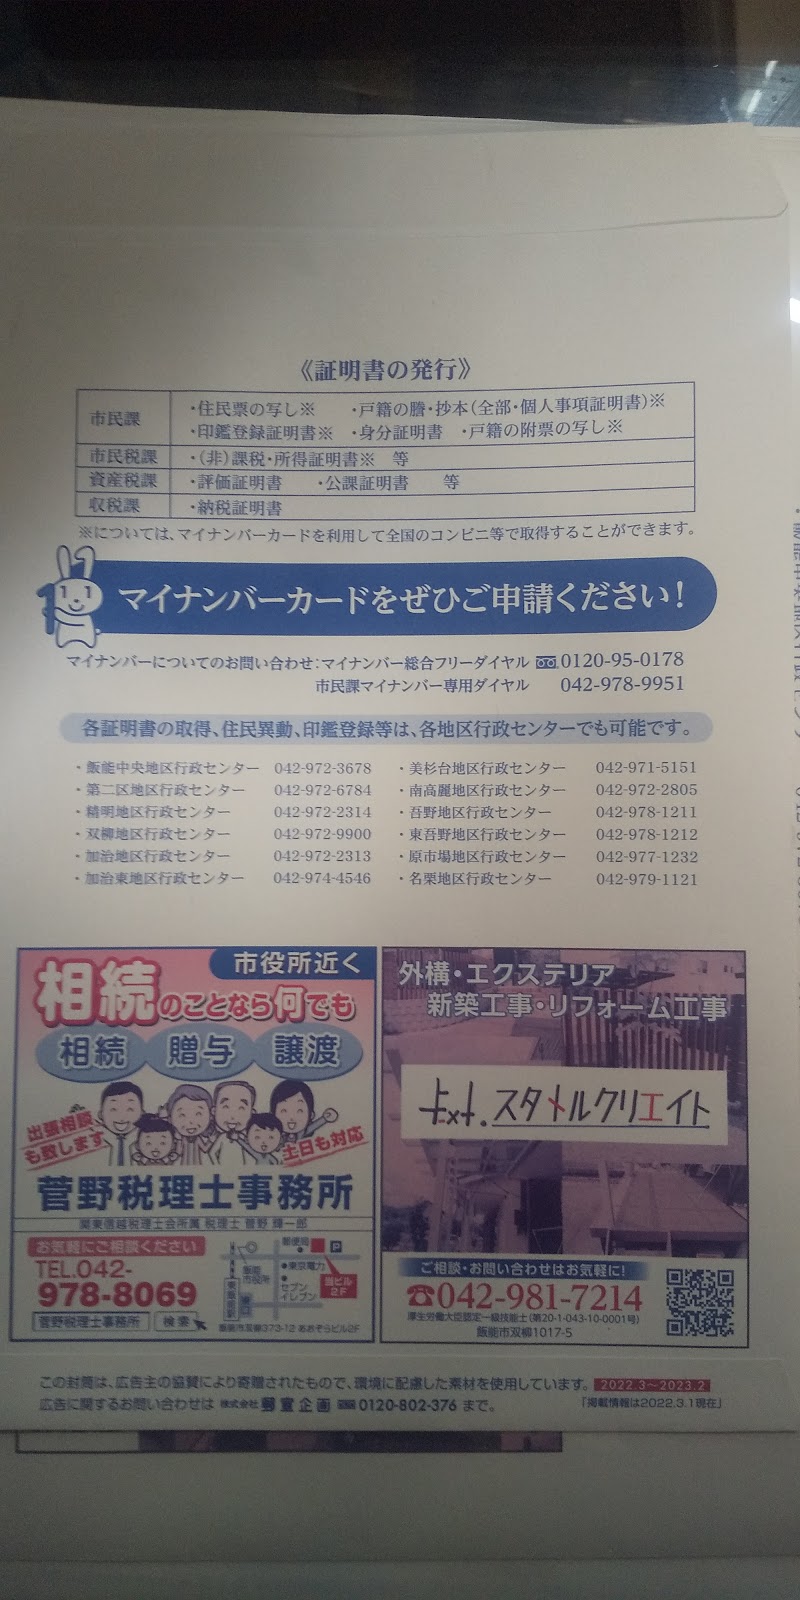 《証明書の発行》
市民課
・住民票の写し※ ・戸籍の謄・抄本(全部・個人事項証明書)※
・印鑑登録証明書※ ・身分証明書 ・戸籍の附票の写し※
市民税課 ・(非)課税・所得証明書※ 等
資産税課 ・評価証明書 ・公課証明書 等
収税課 ・納税証明書
※については、マイナンバーカードを利用して全国のコンビニ等で取得することができます。
マイナンバーカードをぜひご申請ください!
マイナンバーについてのお問い合わせ:マイナンバー総合フリーダイヤル 0120-95-0178
市民課マイナンバー専用ダイヤル 042-978-9951
各証明書の取得、住民異動、印鑑登録等は、各地区行政センターでも可能です。
・飯能中央地区行政センター 042-972-3678
・第二区地区行政センター 042-972-6784
・精明地区行政センター 042-972-2314
・双柳地区行政センター 042-972-9900
・加治地区行政センター 042-972-2313
・加治東地区行政センター 042-974-4546
・美杉台地区行政センター 042-971-5151
・南高麗地区行政センター 042-972-2805
・吾野地区行政センター 042-978-1211
・東吾野地区行政センター 042-978-1212
・原市場地区行政センター 042-977-1232
・名栗地区行政センター 042-979-1121
市役所近く
相続のことなら何でも
相続 贈与 譲渡
出張相談
も致します
土日も対応
菅野税理士事務所
関東信越税理士会所属 税理士 菅野 輝一郎
お気軽にご相談ください
TEL.042-
978-8069
菅野税理士事務所 検索
郵便局
P
飯能
市役所
東京電力
セブン
イレブン
当ビル
2F
東飯能駅
東口
飯能市双柳373-12 あおぞらビル2F
外構・エクステリア
新築工事・リフォーム工事
Ext.スタメルクリエイト
ご相談・お問い合わせはお気軽に!
☎042-981-7214
厚生労働大臣認定一級技能士(第20-1-043-10-0001号)
飯能市双柳1017-5
この封筒は、広告主の協賛により寄贈されたもので、環境に配慮した素材を使用しています。 2022.3~2023.2
広告に関するお問い合わせは 株式会社 郵宣企画 0120-802-376 まで。 「掲載情報は2022.3.1現在」